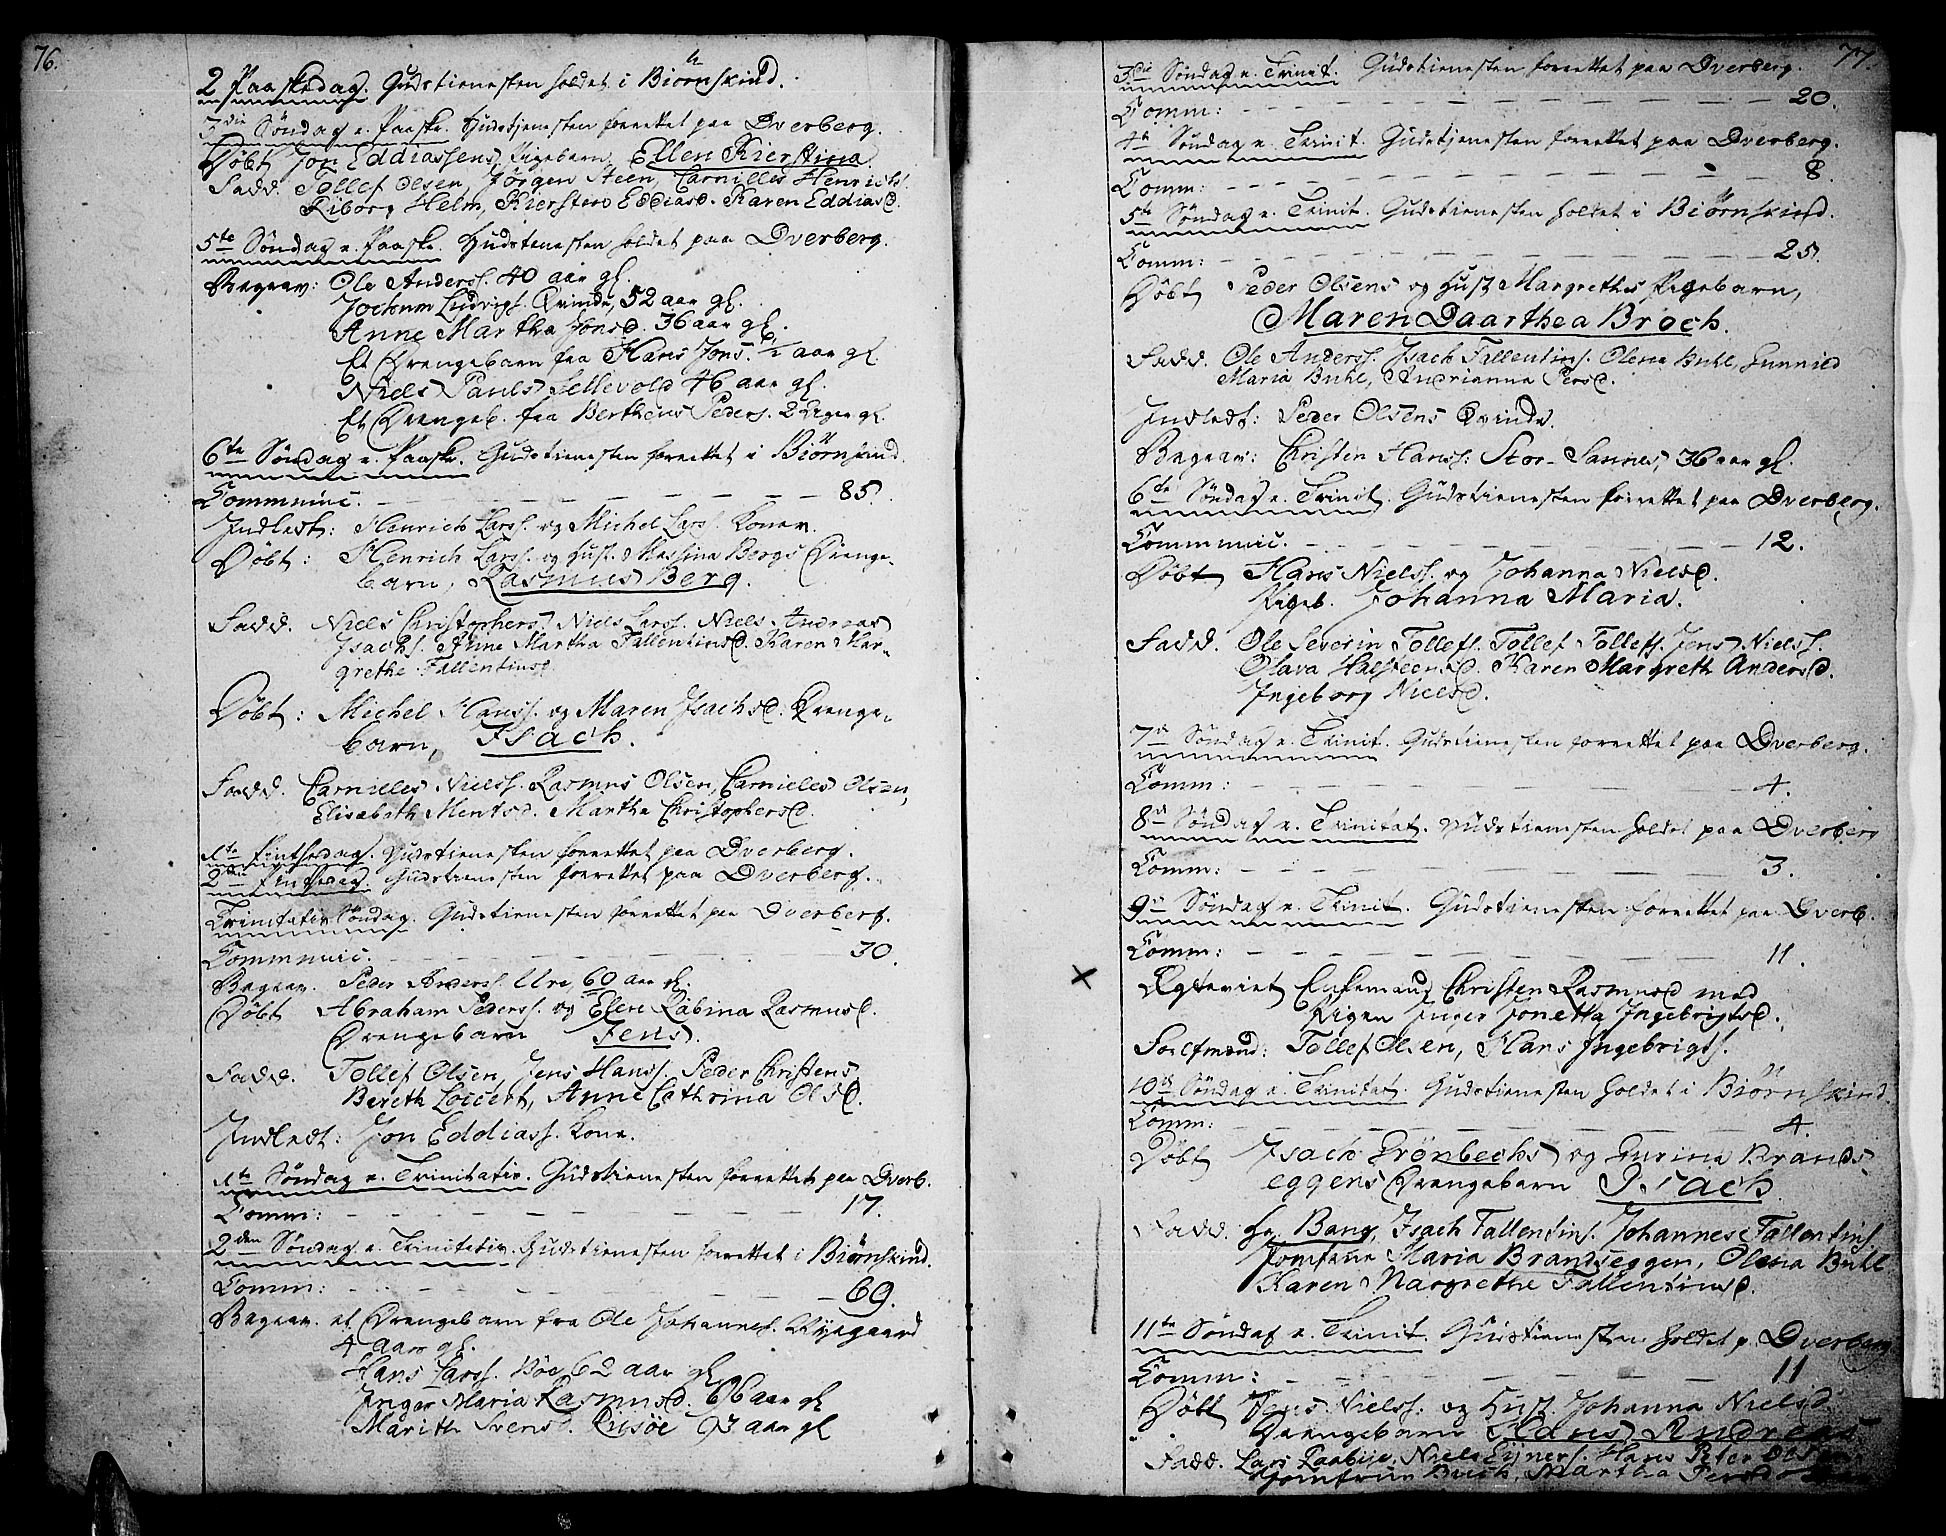 76.
2 Paaskedag. Gudstienesten holdet i Biørnskind.
3die Søndag e. Paaske. Gudstjenesten forrettet paa Dverberg.
Døbt Jon Eddiassens Pigebarn, Ellen Kierstina.
Fadd. Tollef Olsen, Jørgen Steen, Carnilles Henrichs.
Riborg Helm, Kiersten Eddiasd. Karen Eddiasd.
5te Søndag e. Paaske. Gudstienesten holdet paa Dverberg.
Begrav: Ole Anderss. 40 aar gl.
Jochum Ludvigs. Qvinde, 52 aar gl.
Anne Martha Jonsd. 36 aar gl.
Et Drengebarn fra Hans Jons. 1/2 aar gl.
Niels Pauls Sellevold 46 aar gl.
Et Drengeb. fra Berthens Peders. 2 Uger gl.
6te Søndag e. Paaske. Gudstienesten forrettet i Biörnskind.
Communic. 85.
Indledt: Henrich Larss. og Michel Larss. Koner.
Døbt: Henrich Larss. og Hust. Messina Bergs Drenge-
barn, Rasmus Berg.
Fadd. Niels Christophers. Niels Larss. Niels Andreas
Isachs. Anne Martha Fallentinsd. Karen Mar-
grethe Fallentinsd.
Døbt: Michel Hanss. og Maren Isachsd. Drenge-
barn, Isach.
Fadd. Carnilles Nielss. Rasmus Olsen, Carnilles Olsen,
Elisabeth Mentsd. Martha Christophersd.
1te Pintsedag. Gudstienesten forrettet paa Dverberg.
2den Pintsedag. Gudstienesten forrettet paa Dverberg.
Trinitatis Søndag. Gudstienesten forrettet paa Dverberg.
Communic. 30.
Begrav. Peder Anderss. Ure, 60 aar gl.
Døbt Abraham Pederss. og Ellen Rabina Rasmusd.
Drengebarn Jens.
Fadd. Tollef Olsen, Jens Hanss. Peder Christens.
Bereth Loccert, Anne Cathrina Olsd.
Indledt: Jon Eddiass. Kone.
1te Søndag e. Trinitatis. Gudstienesten forrettet paa Dverb.
Comm: 17.
2den Søndag e. Trinitatis. Gudstienesten forrettet i Biørnskind.
Comm: 69.
Begrav. et Drengebarn fra Ole Johannes. Nyegaard
4 aar gl.
Hans Larss. Bøe 62 aar gl
Inger Maria Rasmusd. 66 aar gl
Marith Svensd. Rusøe 93 aar gl
77.
3die Søndag e. Trinit. Gudstienesten forrettet paa Dverberg.
Comm: 20.
4de Søndag e. Trinit. Gudstjenesten forrettet paa Dverberg.
Comm: 8.
5te Søndag e. Trinit. Gudstienesten holdet i Biørnskind.
Comm: 25.
Døbt Peder Olsens og Hust. Margrethes Pigebarn,
Maren Daarthea Broch.
Fadd. Ole Anderss. Isach Fallentins. Olena Buhl, Gunnild
Maria Buhl, Andrianna Persd.
Indledt: Peder Olsens Qvinde.
Begrav: Christen Hanss: Stor-Sannes, 36 aar gl.
6te Søndag e. Trinit. Gudstienesten forrettet paa Dverberg.
Communic. 12.
Døbt Hans Nielss. og Johanna Nielsd.
Pigeb. Johanna Maria.
Fadd. Ole Severin Tollefs. Tollef Tollefs. Jens Nielss.
Olava Halsteensd. Karen Margreth Andersd.
Ingeborg Nielsd.
7de Søndag e. Trinit. Gudstienesten forrettet paa Dverberg.
Comm: 4.
8de Søndag e. Trinitat. Gudstienesten holdet paa Dverberg
Comm: 3.
9de Søndag e. Trinit. Gudstienesten forrettet paa Dverb.
Comm: 11.
Ægteviet Enkemand Christen Rasmusd med
Pigen Inger Jonetta Ingebrigtsd.
Forlfmænd: Tollef Olsen, Hans Ingebrigts.
10de Søndag e. Trinitat. Gudstienesten holdet i Biørnskind.
Comm: 4.
Døbt Isach Grönbechs og Gurina Brands-
eggens Drengebarn Isach
Fadd. Hr Bang, Isach Fallentins. Johannes Fallentins.
Jomfrue Maria Brandseggen, Olena Buhl
Karen Margrethe Fallentinsd.
11te Søndag e. Trinit. Gudstienesten holdet p. Dverberg
Comm: 11
Døbt Jens Nielss. og Hust. Johanna Nielsd
Drengebarn Hans Andreas
Fadd. Lars Niels Hans Peter Olsen
Jomfrue Buch, Martha Persd